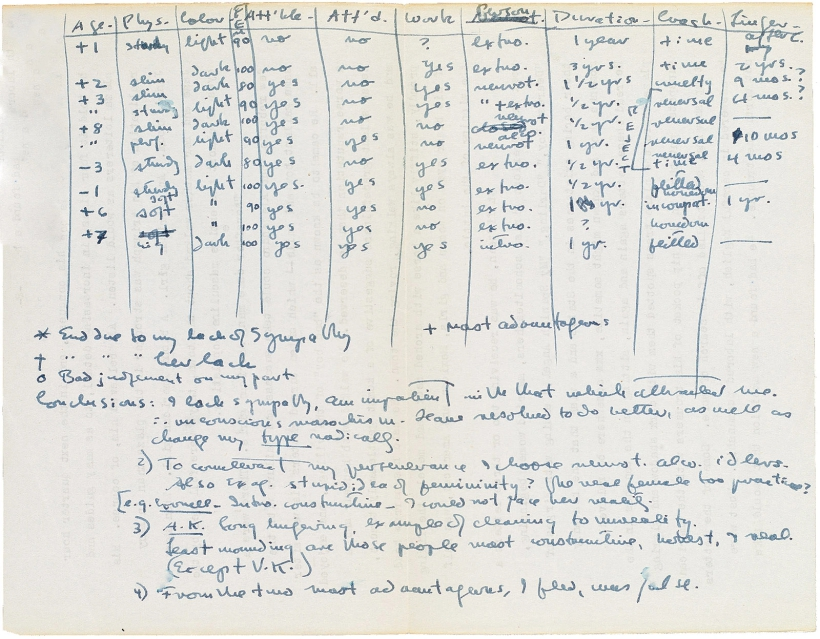 Age- Phys. Colour F E E Att'ble- Att'd. Work Person Duration- Cough- Linger-
after.
+1 sturdy light 90 no no ? extro. 1 year time
dark 100 no no yes extro. 3 yrs. time 2 yrs.
+2 slim dark 80 yes no yes neurot. 1 1/2 yrs cruelty 9 mos.?
+3 slim light 90 yes no yes " + extro. 1/2 yr. reversal 4 mos.?
" sturdy dark 100 yes no neurot 1/2 yr. reversal
+8 slim light 90 yes yes no alco. neurot 1 yr. reversal 10 mos
" perf. dark 80 yes no yes extro. 1/2 yr. reversal time 4 mos
REJECT
-3 sturdy light 100 yes. yes yes extro. 1/2 yr. jilted
-1 sturdy soft " 90 yes yes no extro. incompat. 1 yr.
+6 soft " 100 yes yes no extro. ? boredom
+7 dark 100 yes yes yes intro. 1 yr. jilted
* End due to my lack of sympathy + most advantageous
† " " " her lack
o Bad judgement on my part
Conclusions: I lack sympathy, am impatient with that which attracted me.
∴ unconscious masochism. Have resolved to do better, as well as
change my type radically.
2) To counteract my perseverance I choose neurot. alco. idlers.
Also exag. stupid idea of femininity? The real female too practical?
[e.g. - Intro. constructive - I could not face her reality.
3) A.K. long lingering, example of cleaning to unreality.
Least wounding are those people most constructive, honest, & real.
(Except V.K.)
4) From the two most advantageous, I fled, was false.